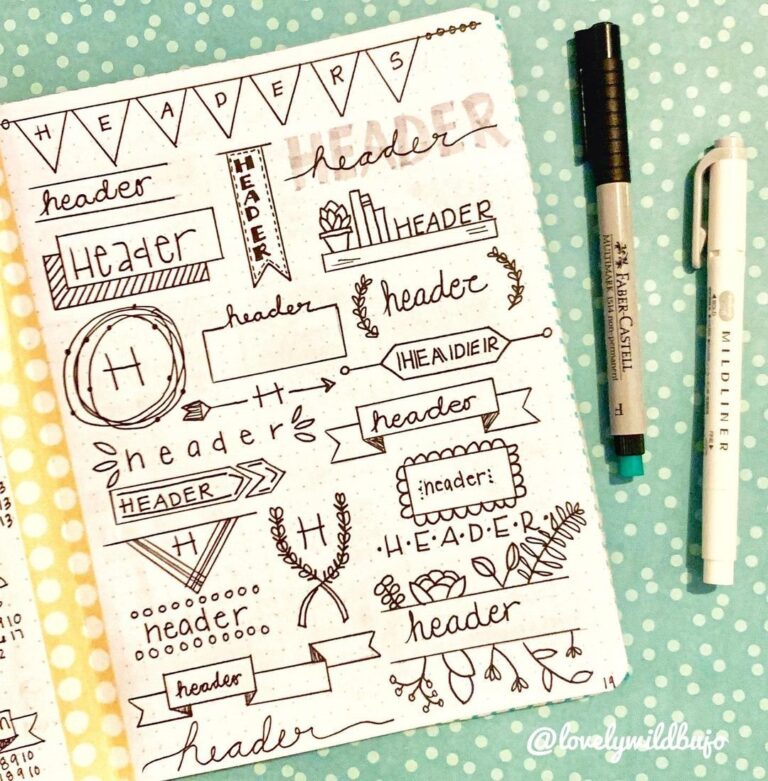 HEADERS
header
HEADER
HEADER
header
Header
HEADER
header
header
H
HEADER
H
header
header
HEADER
header
H
H
H·E·A·D·E·R
header
header
header
header
19
13
13
910
17
2
8910
8910
FABER-CASTELL
MULTIMARK 1514 non-permanent
F
MILDLINER
@lovelywildbujo